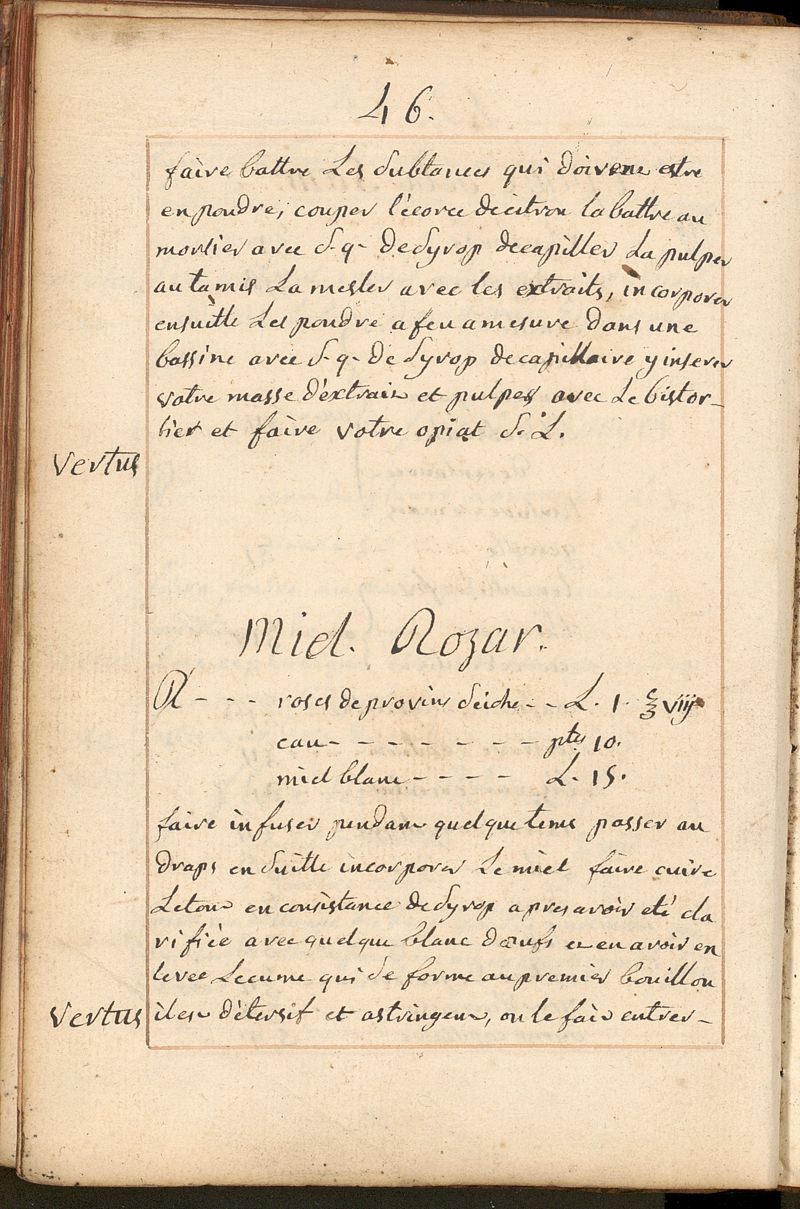 46.
faire battre Les Subtances qui doivent estre
en poudre, couper l'écorce de citron la battre au
mortier avec S. q. De Syrop de capiller La pulper
au tamis La mesler avec les extraits, incorporer
ensuitte Les poudre a feu a mesure dans une
bassine avec S. q. De Syrop de capillaire y inserer
votre masse d'extrait et pulpes avec Le bistor-
tier et faire votre opiat S. L.
Vertus
Miel. Rozar.
R - - - roses de provins Seiche - - L. 1. ℥ viij
eau - - - - - - - ptes 10.
miel blanc - - - - L. 15.
faire infuser pendant quelque tems passer au
draps en Suitte incorporer Le miel faire cuire
Le tout en consistance de Syrop apres avoir eté cla
rifiée avec quelque blanc d'œufs et en avoir en
levée Lecume qui Se forme au premier bouillon
Vertus il est détersif et astringent, on le fait entrer-